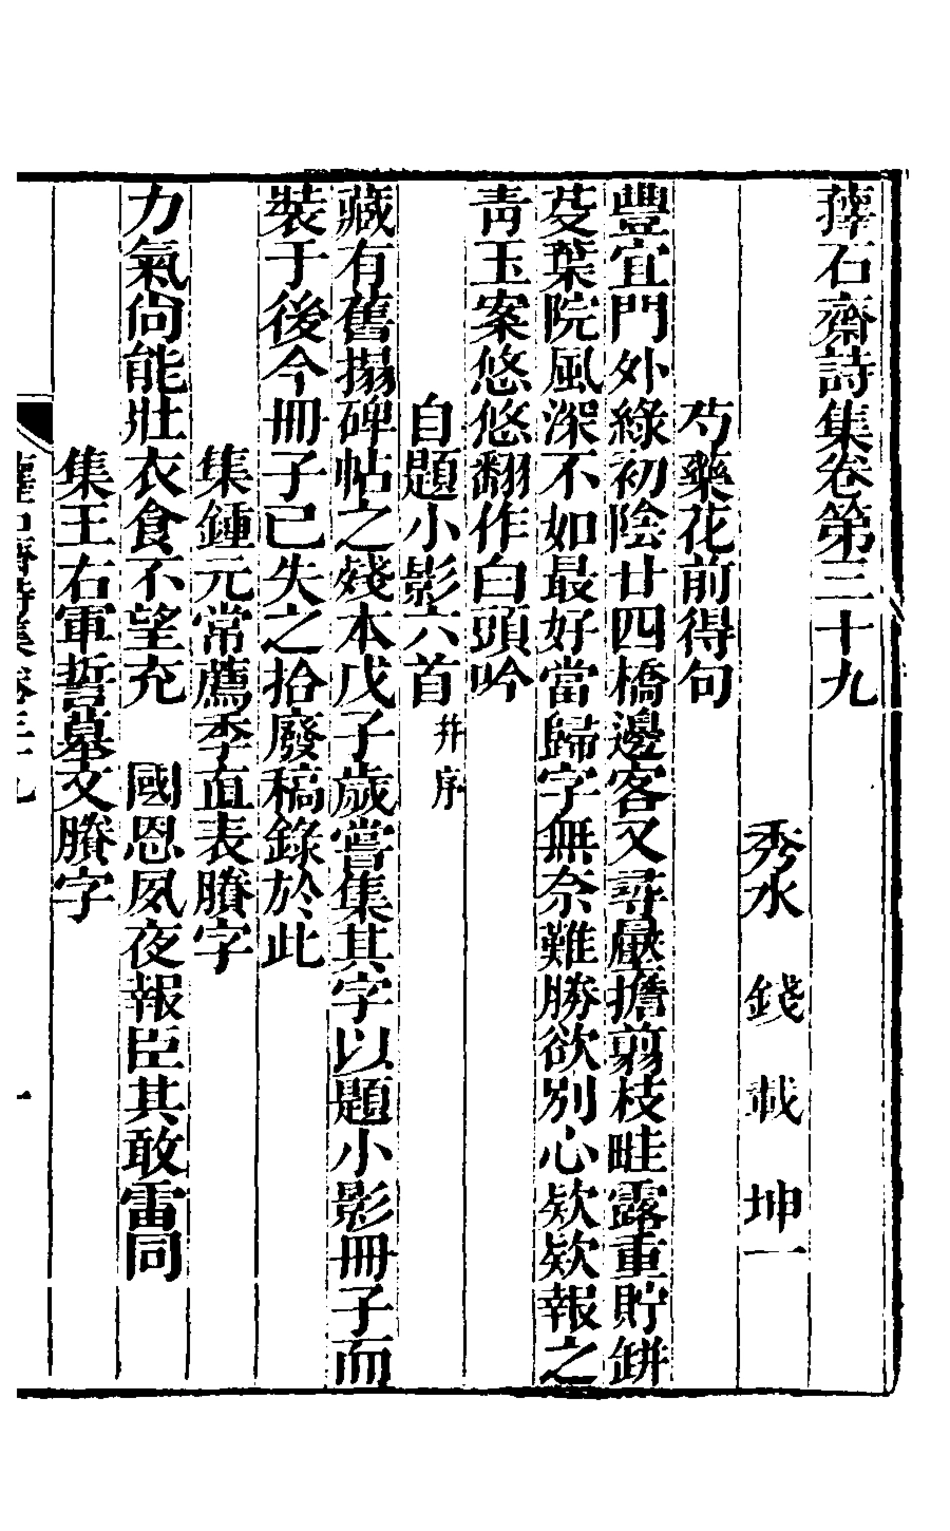 蘀石齋詩集卷第三十九
秀水 錢 載 坤一
芍藥花前得句
豐宜門外綠初陰廿四橋邊客又尋壓擔剪枝畦露重貯缾
芟葉院風深不如最好當歸字無奈難勝欲別心欵欵報之
靑玉案悠悠翻作白頭吟
自題小影六首幷序
藏有舊搨碑帖之殘本戊子歲嘗集其字以題小影冊子而
裝于後今冊子已失之拾廢稿錄於此
集鍾元常薦季直表賸字
力氣尙能壯衣食不望充 國恩夙夜報臣其敢雷同
集王右軍誓墓文賸字
蘀石齋詩集卷三十九 一